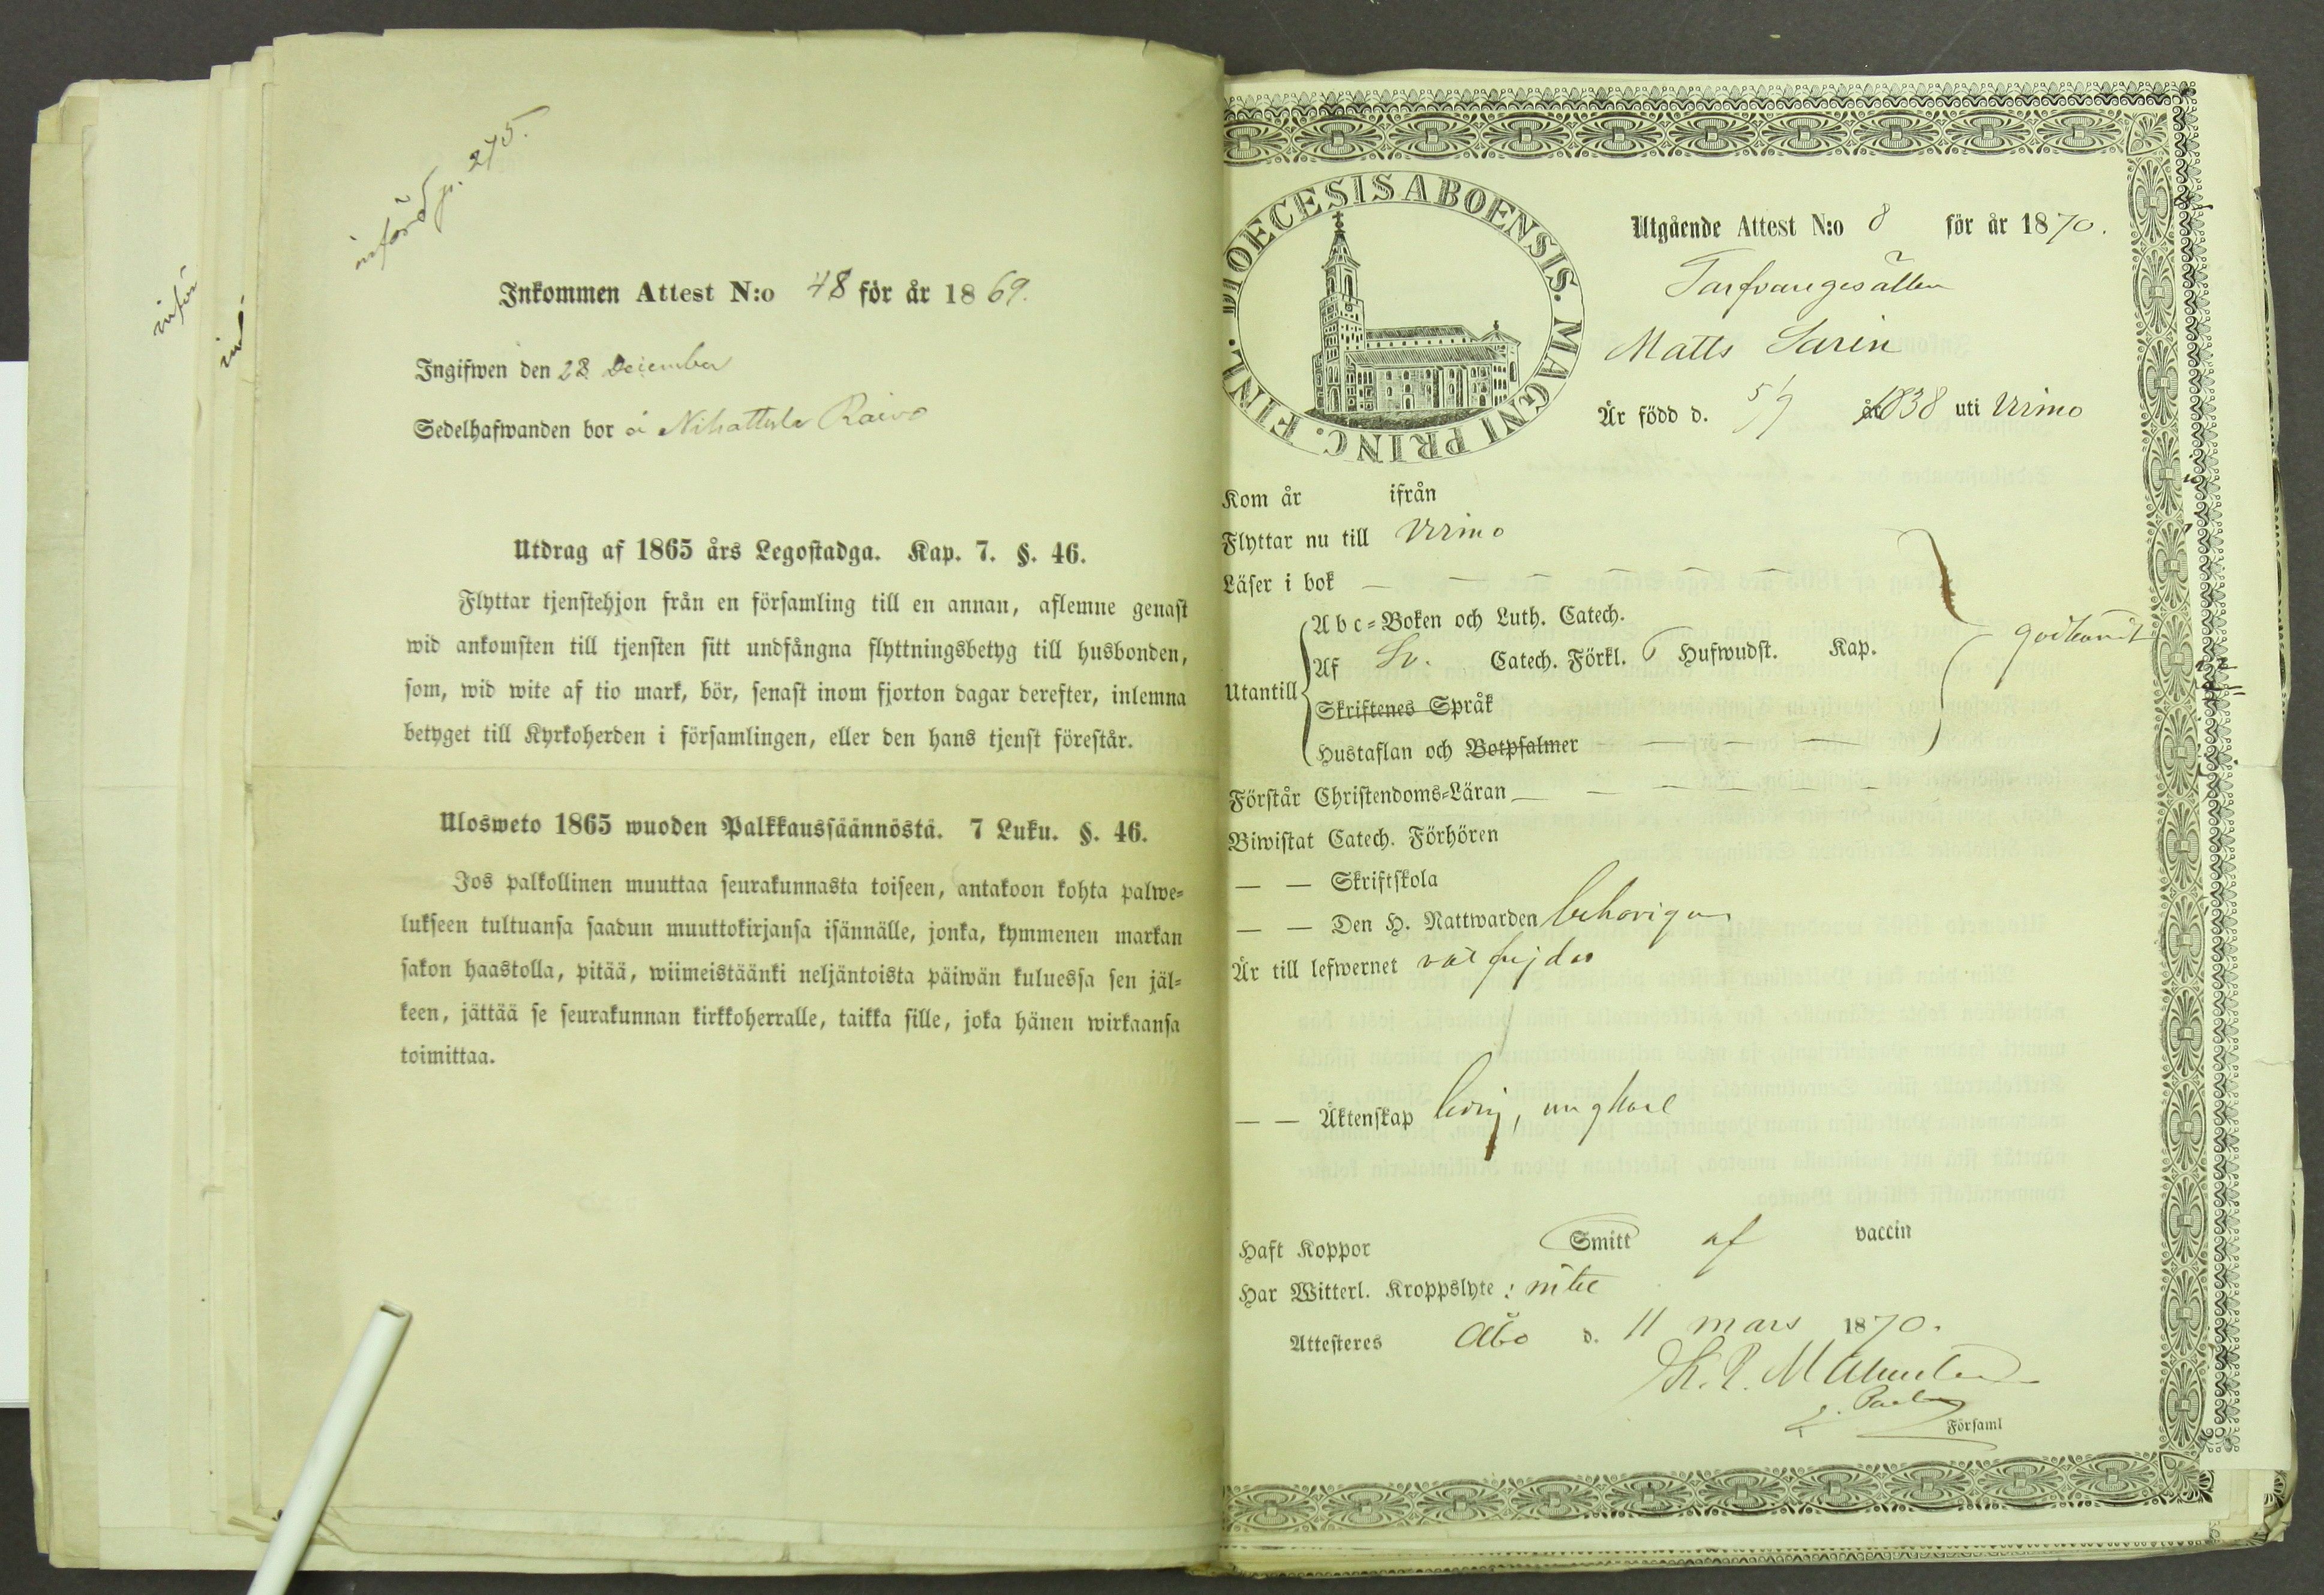 införd p. 275.
Inkommen Attest N:o 48 för år 1869.
Ingifwen den 28 December
Sedelhafwanden bor å Nihattula Raivo
Utdrag af 1865 års Legostadga. Kap. 7. §. 46.
Flyttar tjenstehjon från en församling till en annan, aflemne genast
wid ankomsten till tjensten sitt undfångna flyttningsbetyg till husbonden,
som, wid wite af tio mark, bör, senast inom fjorton dagar derefter, inlemna
betyget till Kyrkoherden i församlingen, eller den hans tjenst förestår.
Ulosweto 1865 wuoden Palkkaussäännöstä. 7 Luku. §. 46.
Jos palkollinen muuttaa seurakunnasta toiseen, antakoon kohta palwe-
lukseen tultuansa saadun muuttokirjansa isännälle, jonka, kymmenen markan
sakon haastolla, pitää, wiimeistäänki neljäntoista päiwän kuluessa sen jäl-
keen, jättää se seurakunnan kirkkoherralle, taikka sille, joka hänen wirkaansa
toimittaa.
DIOECESIS ABOENSIS. MAGNI PRINC. FINL.
Utgående Attest N:o 8 för år 1870.
Garfvaregesällen
Matts Sarin
Är född d. 5/9 år 1838 uti Virmo
Kom år ifrån
Flyttar nu till Virmo
Läser i bok
Abc-Boken och Luth. Catech.
Utantill Af Sv. Catech. Förkl. 6 Hufwudst. Kap. godkändt
Skriftenes Språk
Hustaflan och Botpsalmer
Förstår Christendoms-Läran
Biwistat Catech. Förhören
— — Skriftskola
— — Den H. Nattwarden behörigen
Är till lefwernet väl frejdad
— — Äktenskap ledig, ung karl
Haft Koppor Smitt af vaccin
Har Witterl. Kroppslyte: intet
Attesteres Åbo d. 11 mars 1870.
Församl